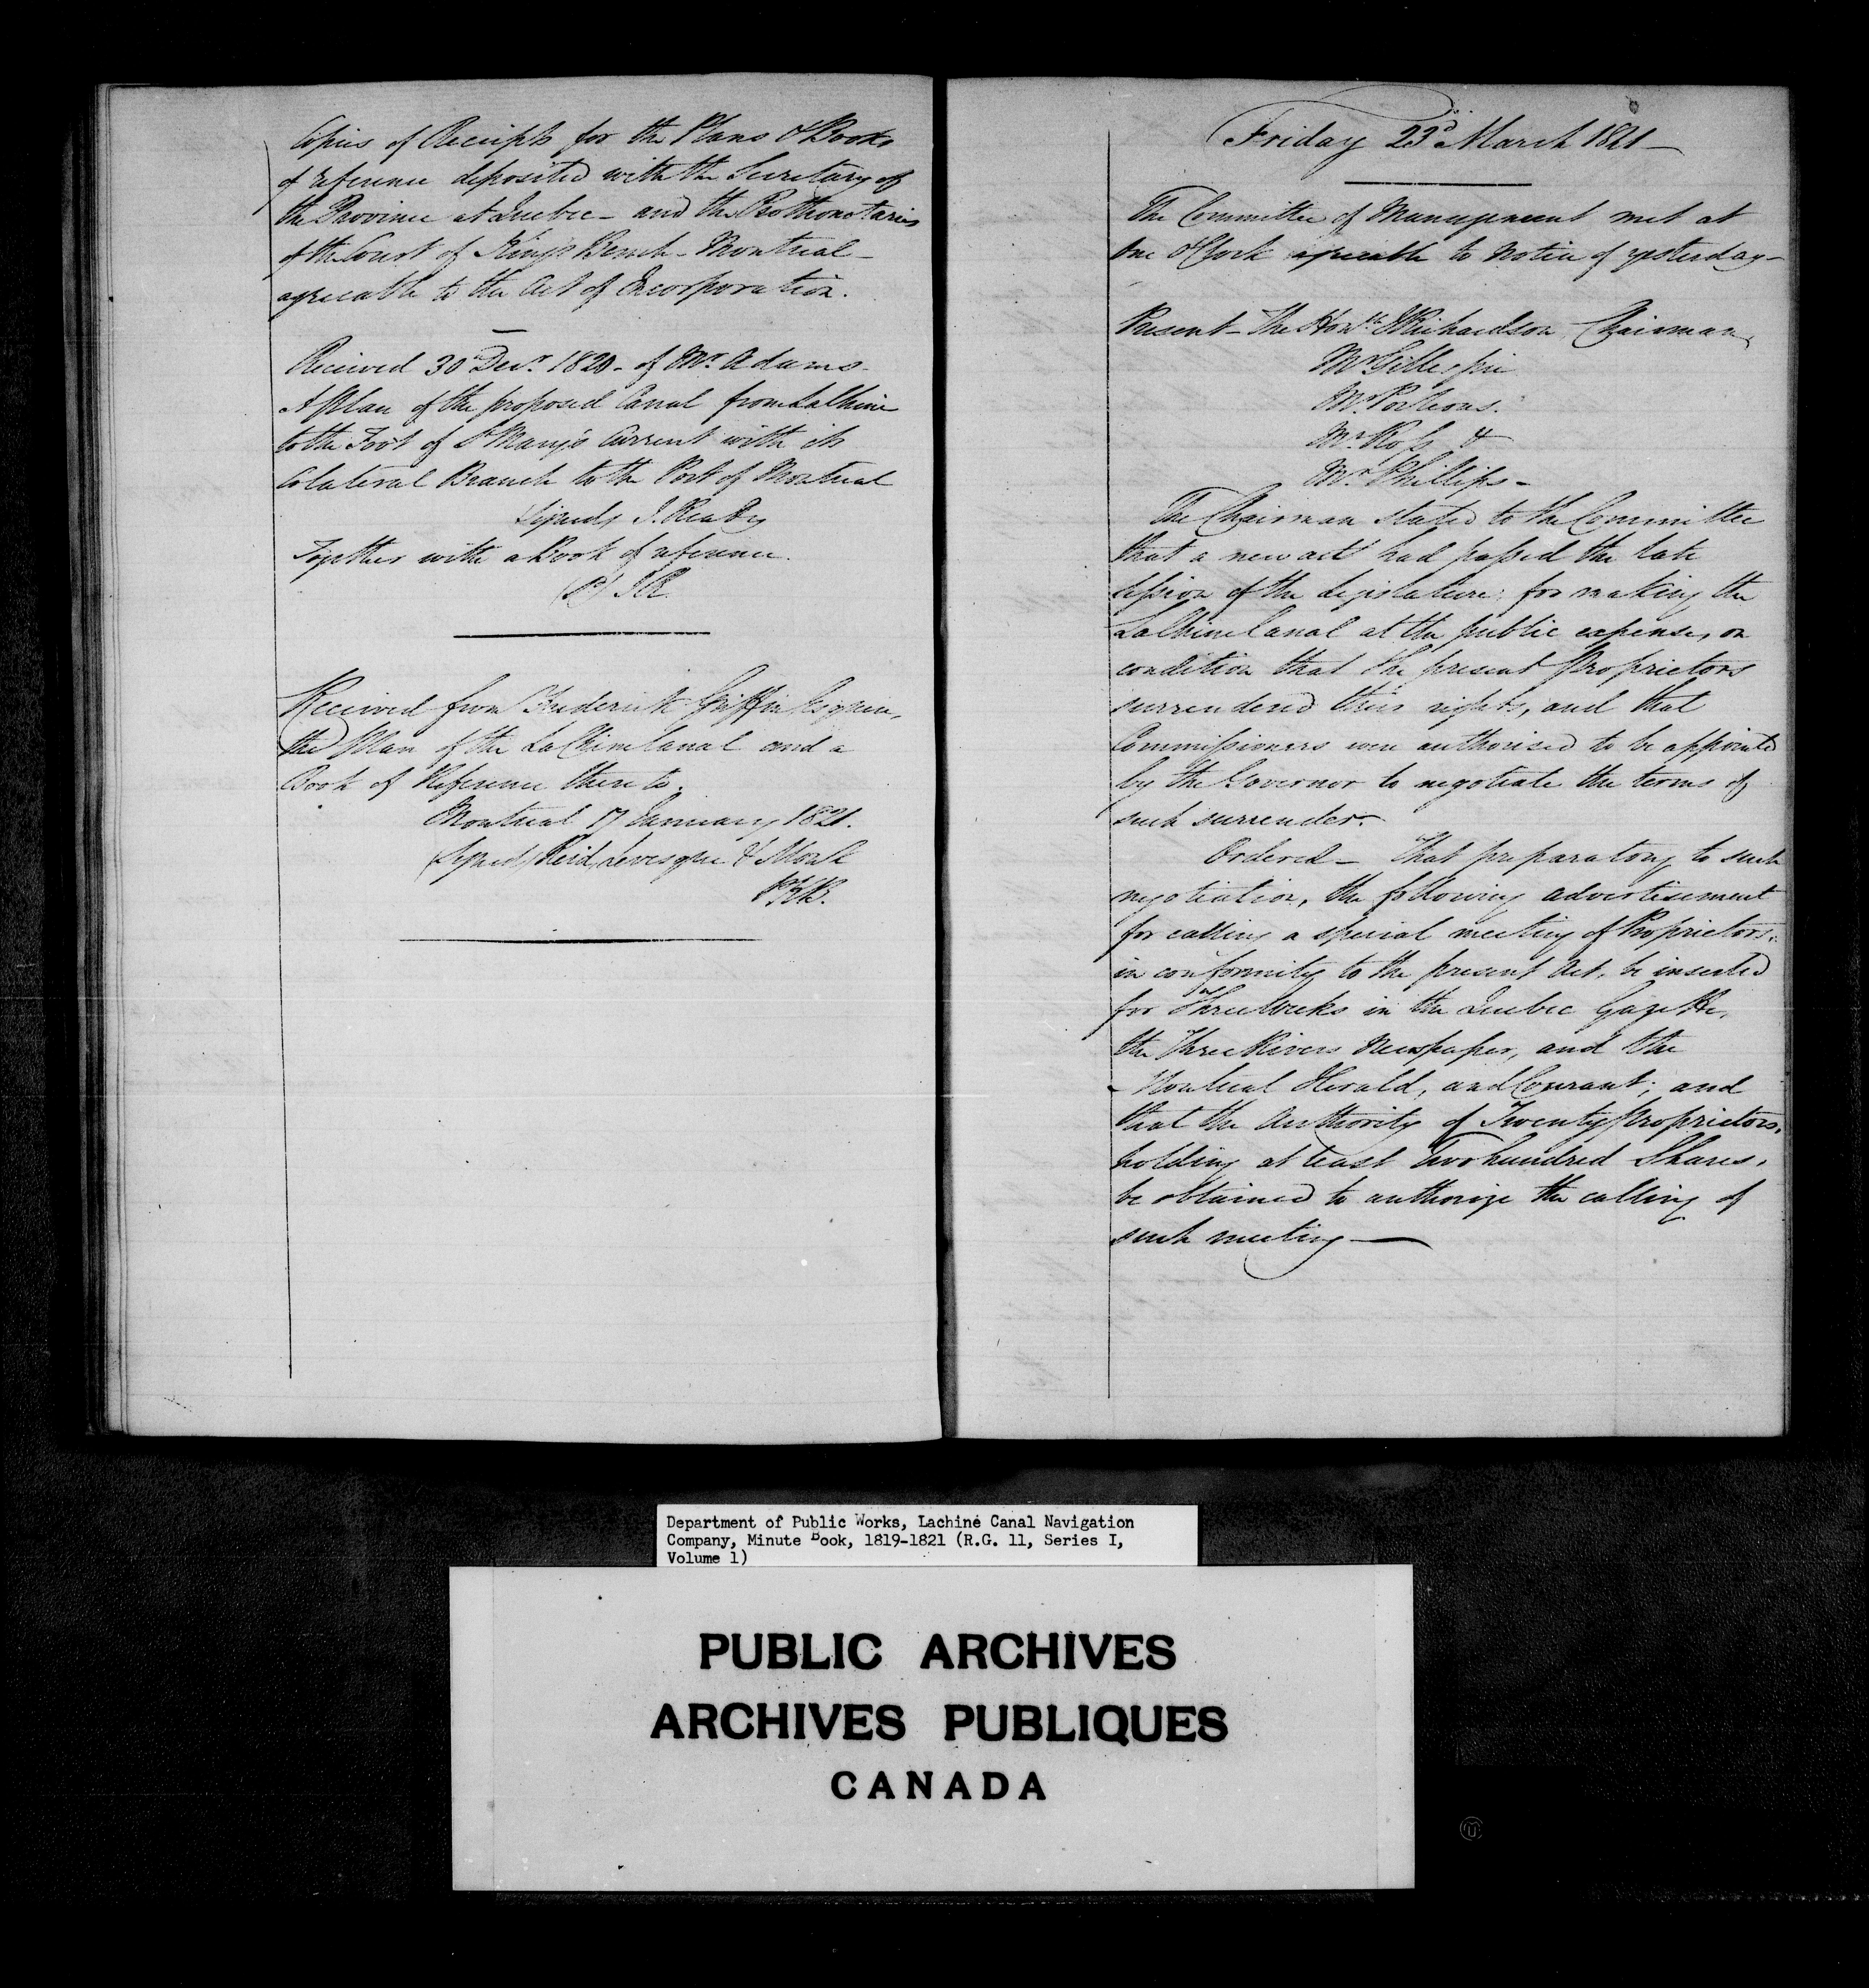 Copies of Receipts for the Plans & Books
of reference deposited with the Secretary of
the Province at Quebec - and the Prothonotaries
of the Court of Kings Bench - Montreal -
agreeable to the Act of Incorporation.
Received 30 Decr. 1820 - of Mr. Adams -
A Plan of the proposed Canal from Lachine
to the Foot of St Mary's Current with its
Colateral Branch to the Port of Montreal
Signed J. Ready
Together with a Book of reference.
(S) J.R.
Received from Frederick Griffin Esquire,
the Plan of the La Chine Canal and a
Book of Reference there to.
Montreal 17 January 1821.
(Signed) Reid, Levesque & Monk
P. K B.
Friday 23d March 1821 -
The Committee of Management met at
one O'Clock agreeable to Notice of yesterday -
Present - The Honble J Richardson Chairman,
Mr Gillespie
Mr. Porteous.
Mr. Ross &
Mr. Phillips -
The Chairman stated to the Committee
that a new act had passed the late
Session of the Legislature; for making the
La Chine Canal at the public expense, on
condition that the present Proprietors
surrendered their rights, and that
Commissioners were authorised to be appointed
by the Governor to negotiate the terms of
such surrender -
Ordered - That preparatory to such
negotiation, the following advertisement
for calling a special meeting of Proprietors,
in conformity to the present Act, be inserted
for Three Weeks in the Quebec Gazette,
the Three Rivers Newspaper, and the
Montreal Herald, and Courant; and
that the Authority of Twenty Proprietors,
holding at least Two hundred Shares,
be obtained to authorize the calling of
such meeting -
Department of Public Works, Lachine Canal Navigation
Company, Minute Book, 1819-1821 (R.G. 11, Series I,
Volume 1)
PUBLIC ARCHIVES
ARCHIVES PUBLIQUES
CANADA